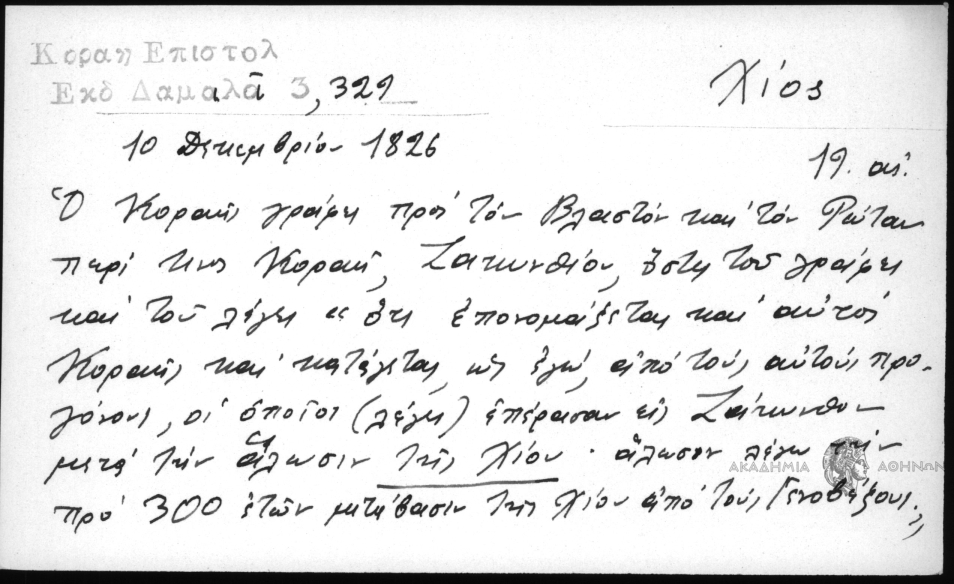 Κοραη Επιστολ
Εκδ Δαμαλᾶ 3, 329
Χίος
10 Δεκεμβρίου 1826
19. αἰ.
Ὁ Κοραῆς γράφει πρός τόν Βλαστόν καί τόν Ρώταν
περί τινος Κοραῆ, Ζακυνθίου, ὅστις τοῦ γράφει
καί τοῦ λέγει "ὅτι ἐπονομάζεται καί αὐτός
Κοραῆς καί κατάγεται, ὡς ἐγώ, ἀπό τούς αὐτούς προ-
γόνους, οἱ ὁποῖοι (λέγει) ἐπέρασαν εἰς Ζάκυνθον
μετά τήν ἅλωσιν τῆς Χίου · ἅλωσιν λέγω τήν
πρό 300 ἐτῶν μετάβασιν τῆς Χίου ἀπό τούς Γενοβέζους.,,
ΑΚΑΔΗΜΙΑ ΑΘΗΝΩΝ